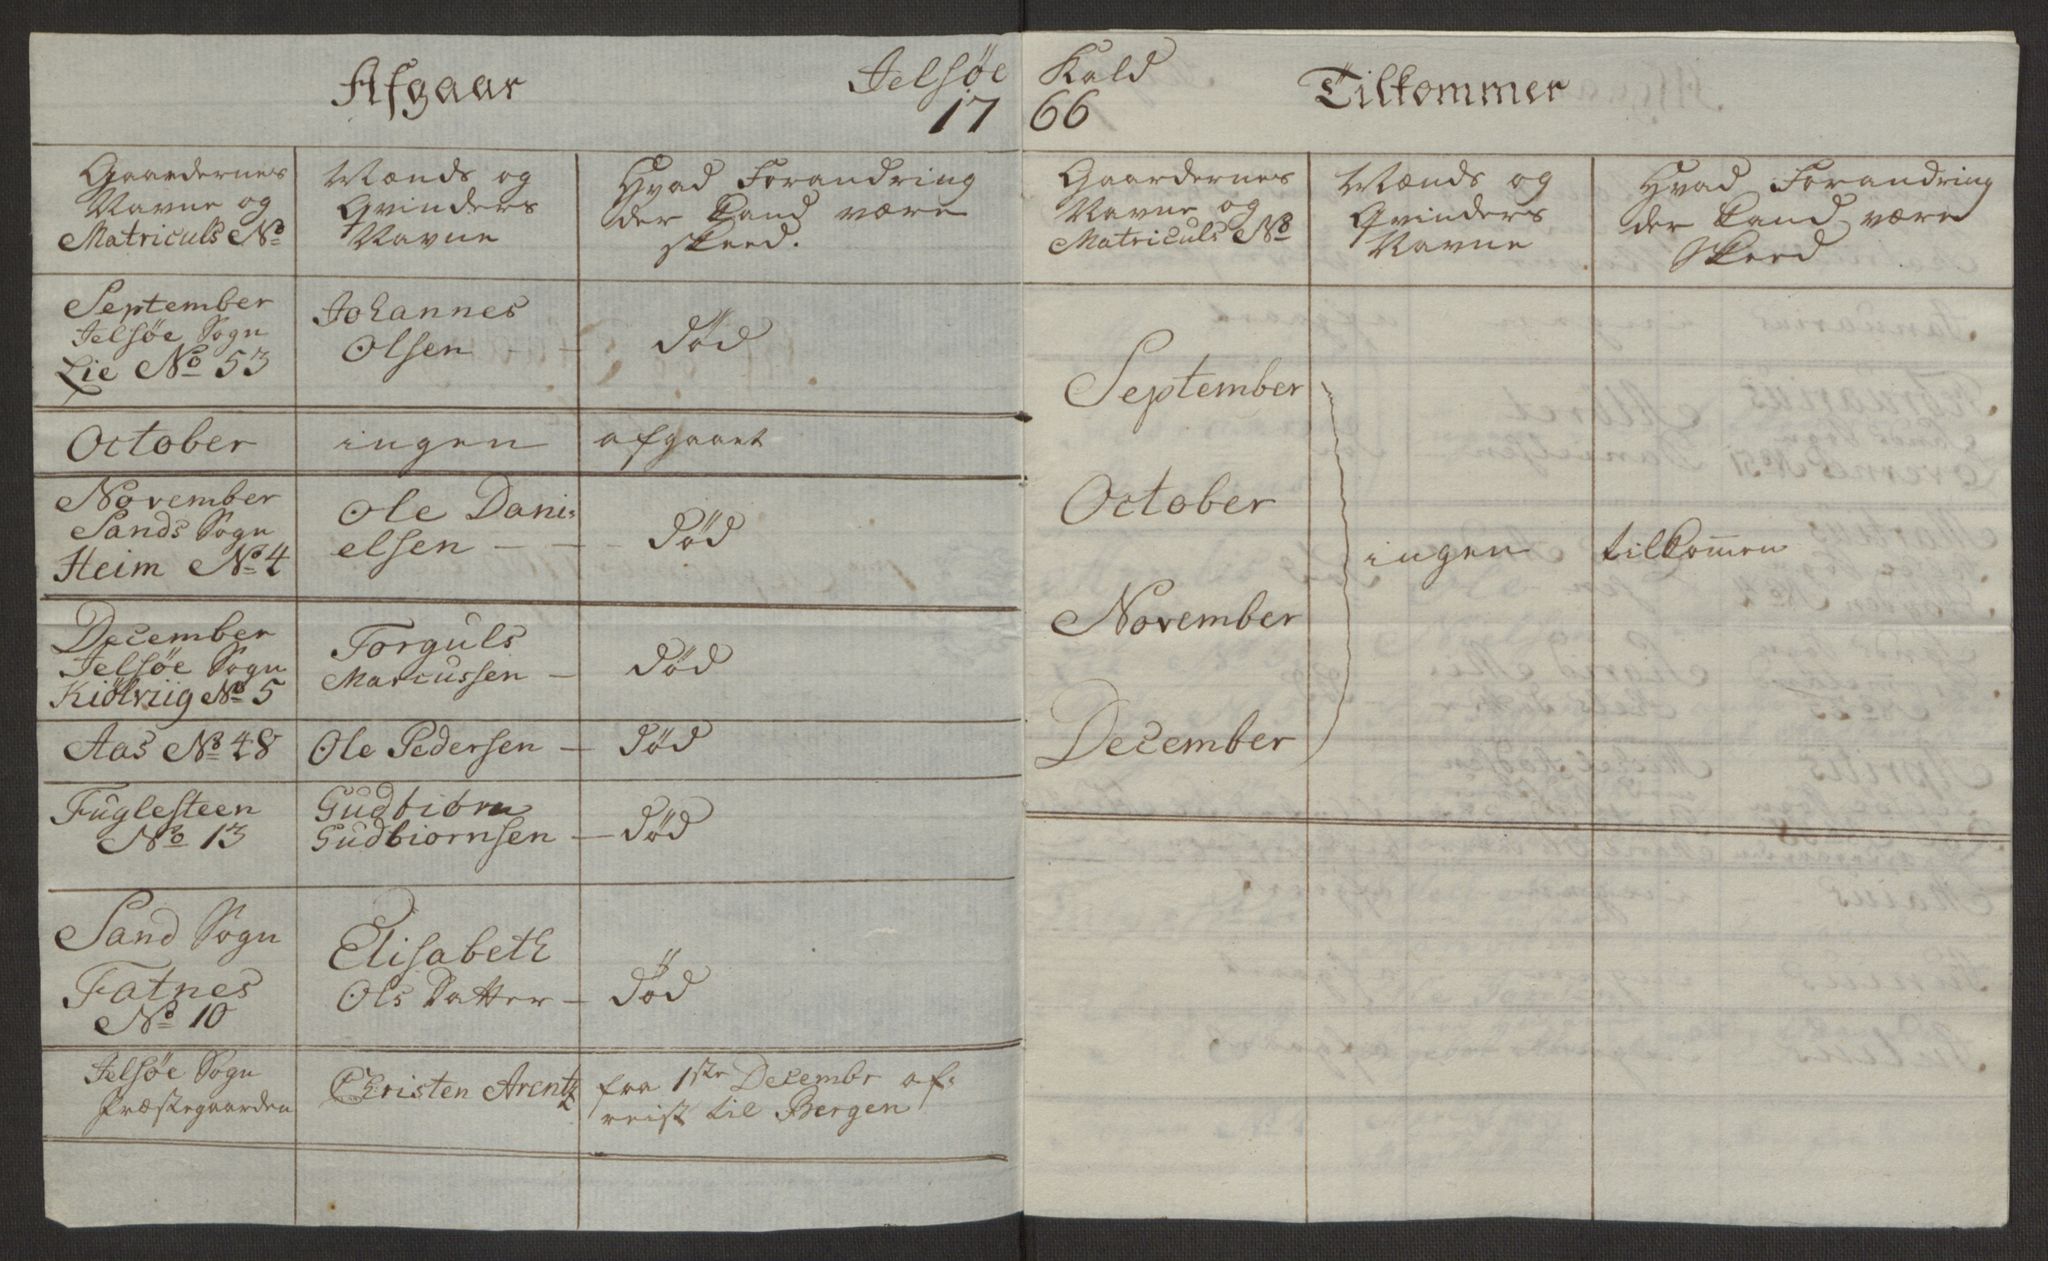 Afgaar
Jelsøe Kald
1766
Tilkommer
Gaardernes
Navne og
Matriculs No
Mænds og
Qvinders
Navne
Hvad Forandring
der kand være
skeed.
September
Jelsøe Sogn
Lie No 53
Johannes
Olsen - -
død
October
ingen
afgaaet
November
Sands Sogn
Heim No 4
Ole Dani=
elsen - - -
død
December
Jelsøe Sogn
Kiölviig No 5
Torguls
Marcussen -
død
Aas No 48
Ole Pedersen -
død
Fuglesteen
No 13
Gudbiörn
Gudbiornsen -
død
Sand Sogn
Fatnes
No 10
Elisabeth
Ols Datter -
død
Jelsøe Sogn
Præstegaarden
Christen Arentz
fra 1ste Decembr af=
reist til Bergen
Gaardernes
Navne og
Matriculs No
Mænds og
Qvinders
Navne
Hvad Forandring
der kand være
skeed
September
October
ingen
tilkom̄en
November
December